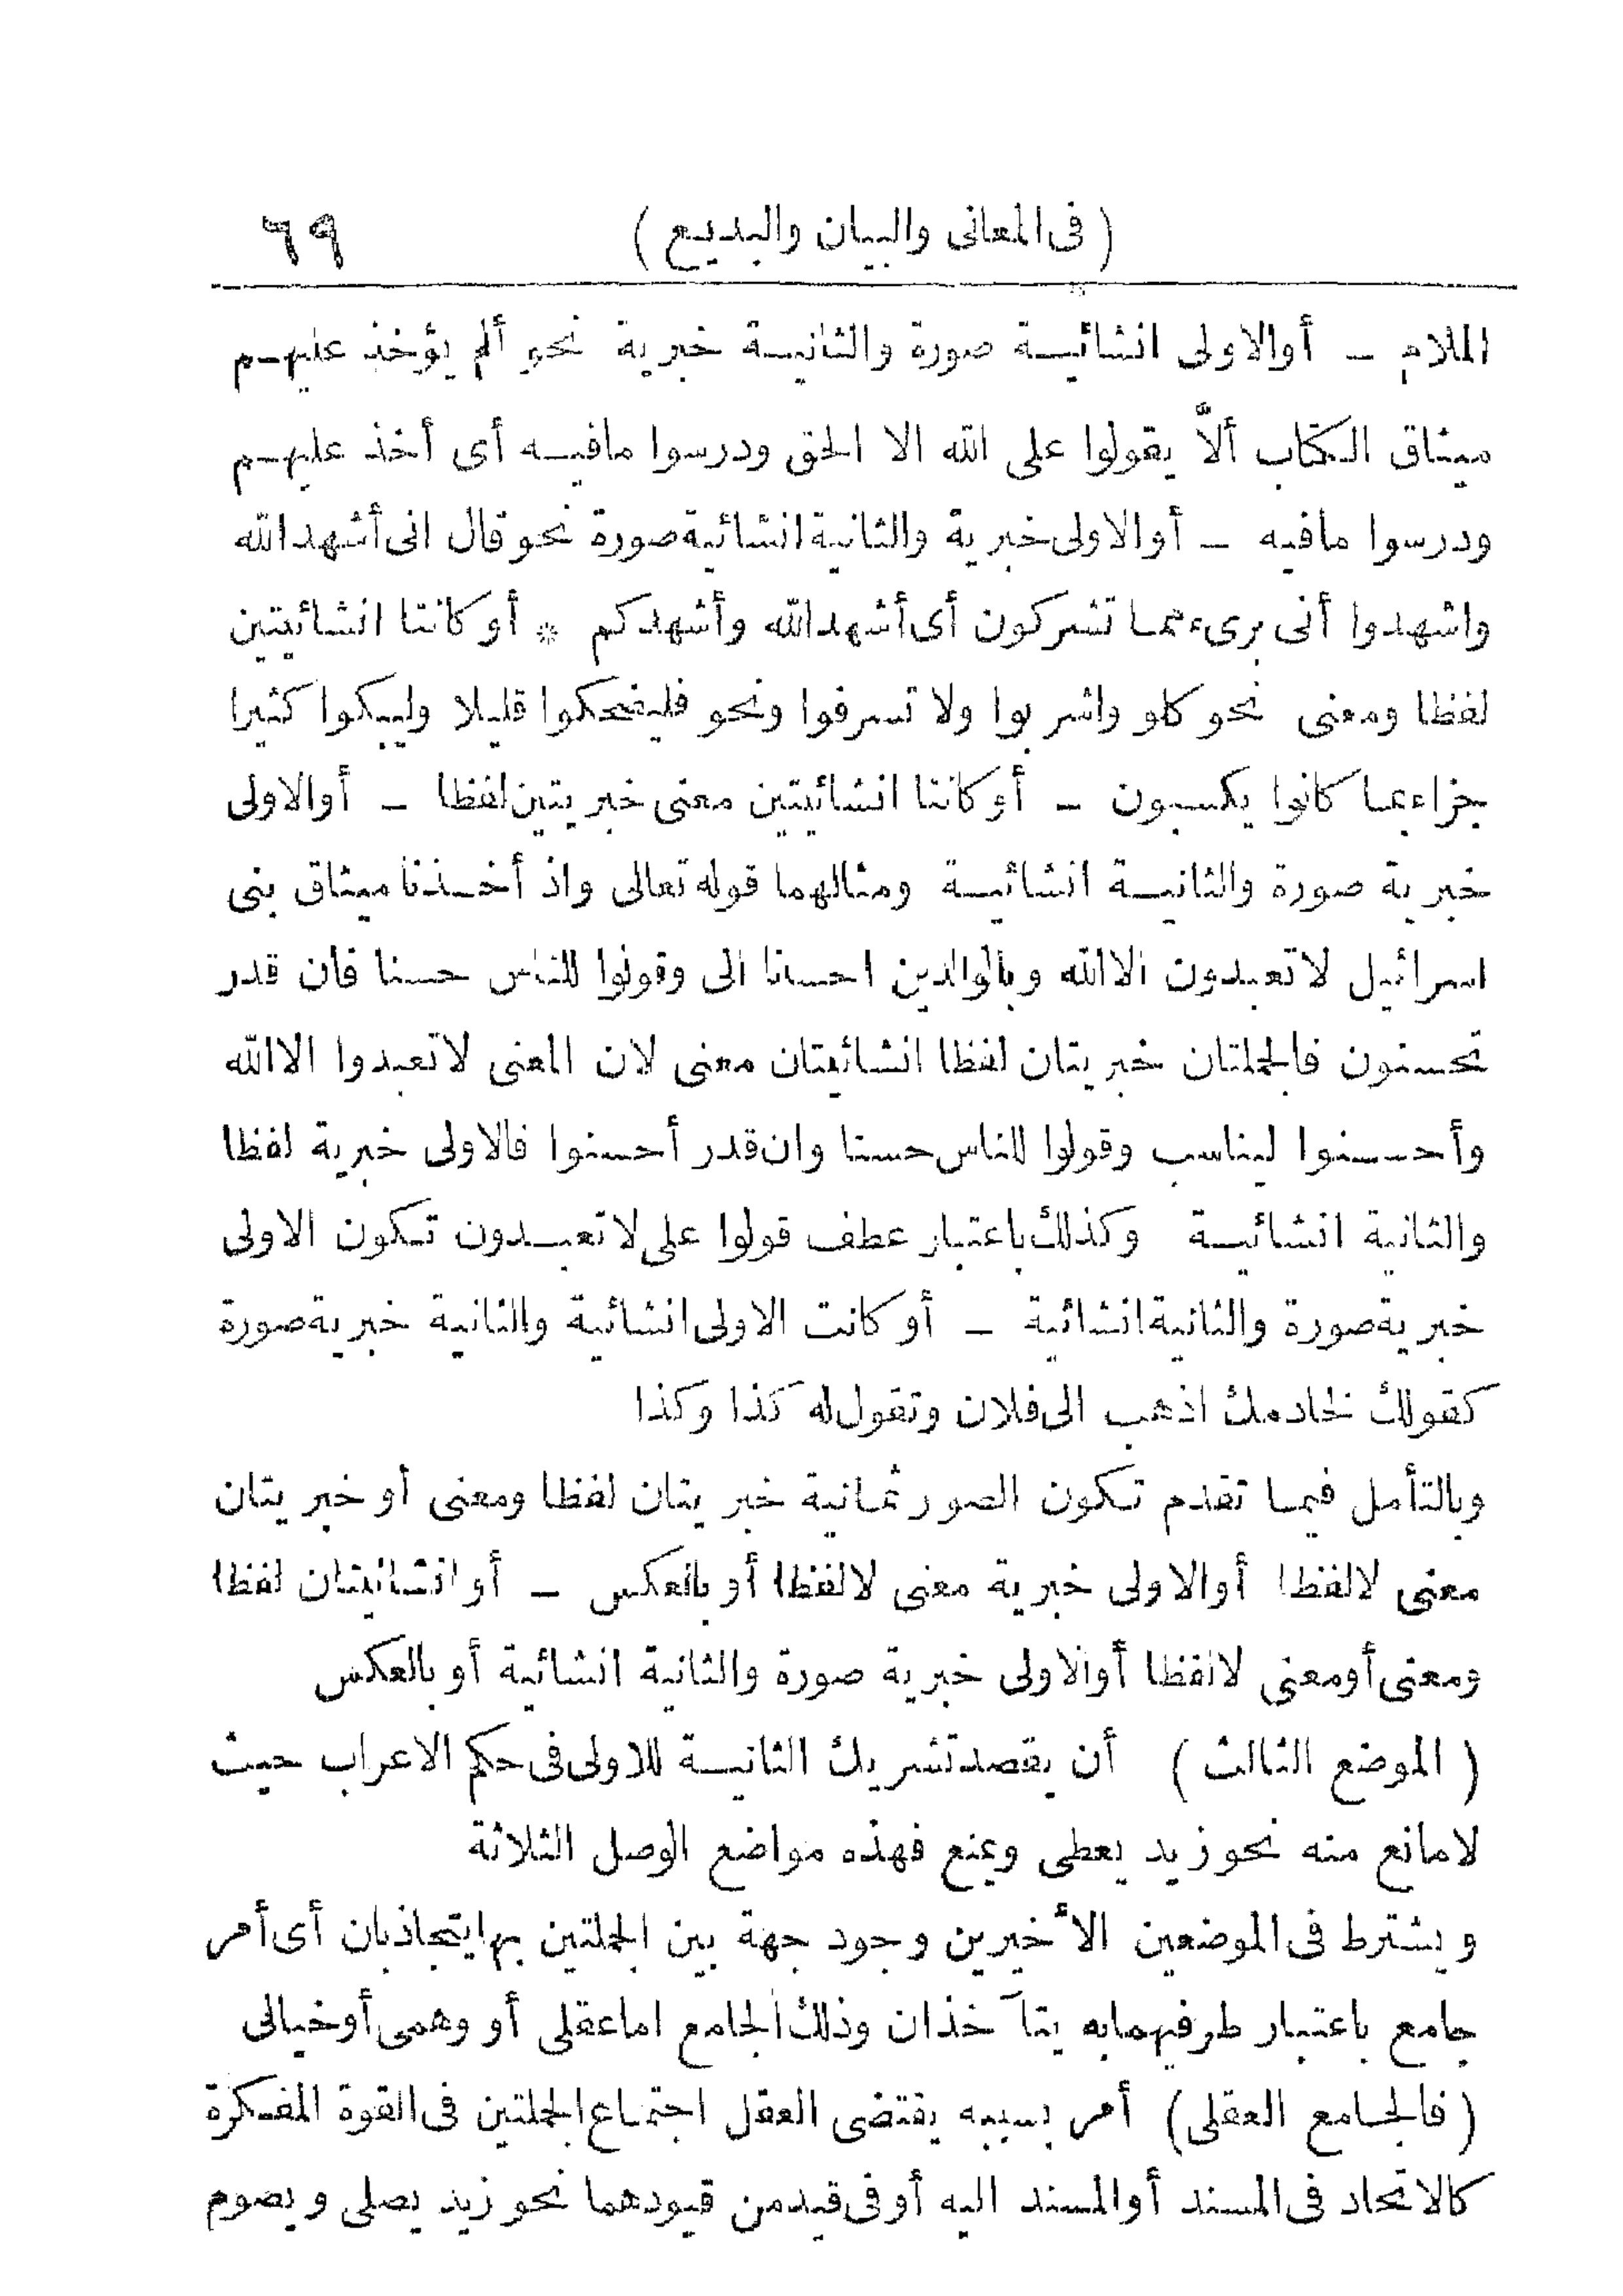 ( فى المعانى والبيان والبديع ) ٦٩
الملام ـ أوالاولى انشائيـة صورة والثانيـة خبرية نحو ألم يؤخذ عليهـم
ميثاق الكتاب ألاّ يقولوا على الله الا الحق ودرسوا مافيـه أى أخذ عليهـم
ودرسوا مافيه ـ أوالاولى خبرية والثانية انشائية صورة نحو قال انى أشهد الله
واشهدوا أنى برىء مما تشركون أى أشهد الله وأشهدكم * أو كانتا انشائيتين
لفظا ومعنى نحو كلو واشربوا ولا تسرفوا ونحو فليضحكوا قليلا وليبكوا كثيرا
جزاء بما كانوا يكسبون ـ أو كانتا انشائيتين معنى خبريتين لفظا ـ أوالاولى
خبرية صورة والثانيـة انشائيـة ومثالهما قوله تعالى واذ أخـذنا ميثاق بنى
اسرائيل لا تعبدون الا الله وبالوالدين احسانا الى وقولوا للناس حسنا فان قدر
تحسنون فالجملتان خبريتان لفظا انشائيتان معنى لان المعنى لا تعبدوا الا الله
وأحسـنوا ليناسب وقولوا للناس حسنا وان قدر أحسنوا فالاولى خبرية لفظا
والثانية انشائيـة وكذلك باعتبار عطف قولوا على لا تعبـدون تكون الاولى
خبرية صورة والثانية انشائية ـ أو كانت الاولى انشائية والثانية خبرية صورة
كقولك لخادمك اذهب الى فلان وتقول له كذا وكذا
وبالتأمل فيما تقدم تكون الصور ثمانية خبريتان لفظا ومعنى أو خبريتان
معنى لا لفظا أوالاولى خبرية معنى لا لفظا أو بالعكس ـ أو انشائيتان لفظا
ومعنى أومعنى لا لفظا أوالاولى خبرية صورة والثانية انشائية أو بالعكس
( الموضع الثالث ) أن يقصد تشريك الثانيـة للاولى فى حكم الاعراب حيث
لا مانع منه نحو زيد يعطى ويمنع فهذه مواضع الوصل الثلاثة
ويشترط فى الموضعين الأخيرين وجود جهة بين الجملتين بها يتجاذبان أى أمر
جامع باعتبار طرفيهما به يتآخذان وذلك الجامع اما عقلى أو وهمى أوخيالى
( فالجامع العقلى ) أمر بسببه يقتضى العقل اجتماع الجملتين فى القوة المفكرة
كالاتحاد فى المسند أوالمسند اليه أو فى قيد من قيودهما نحو زيد يصلى ويصوم